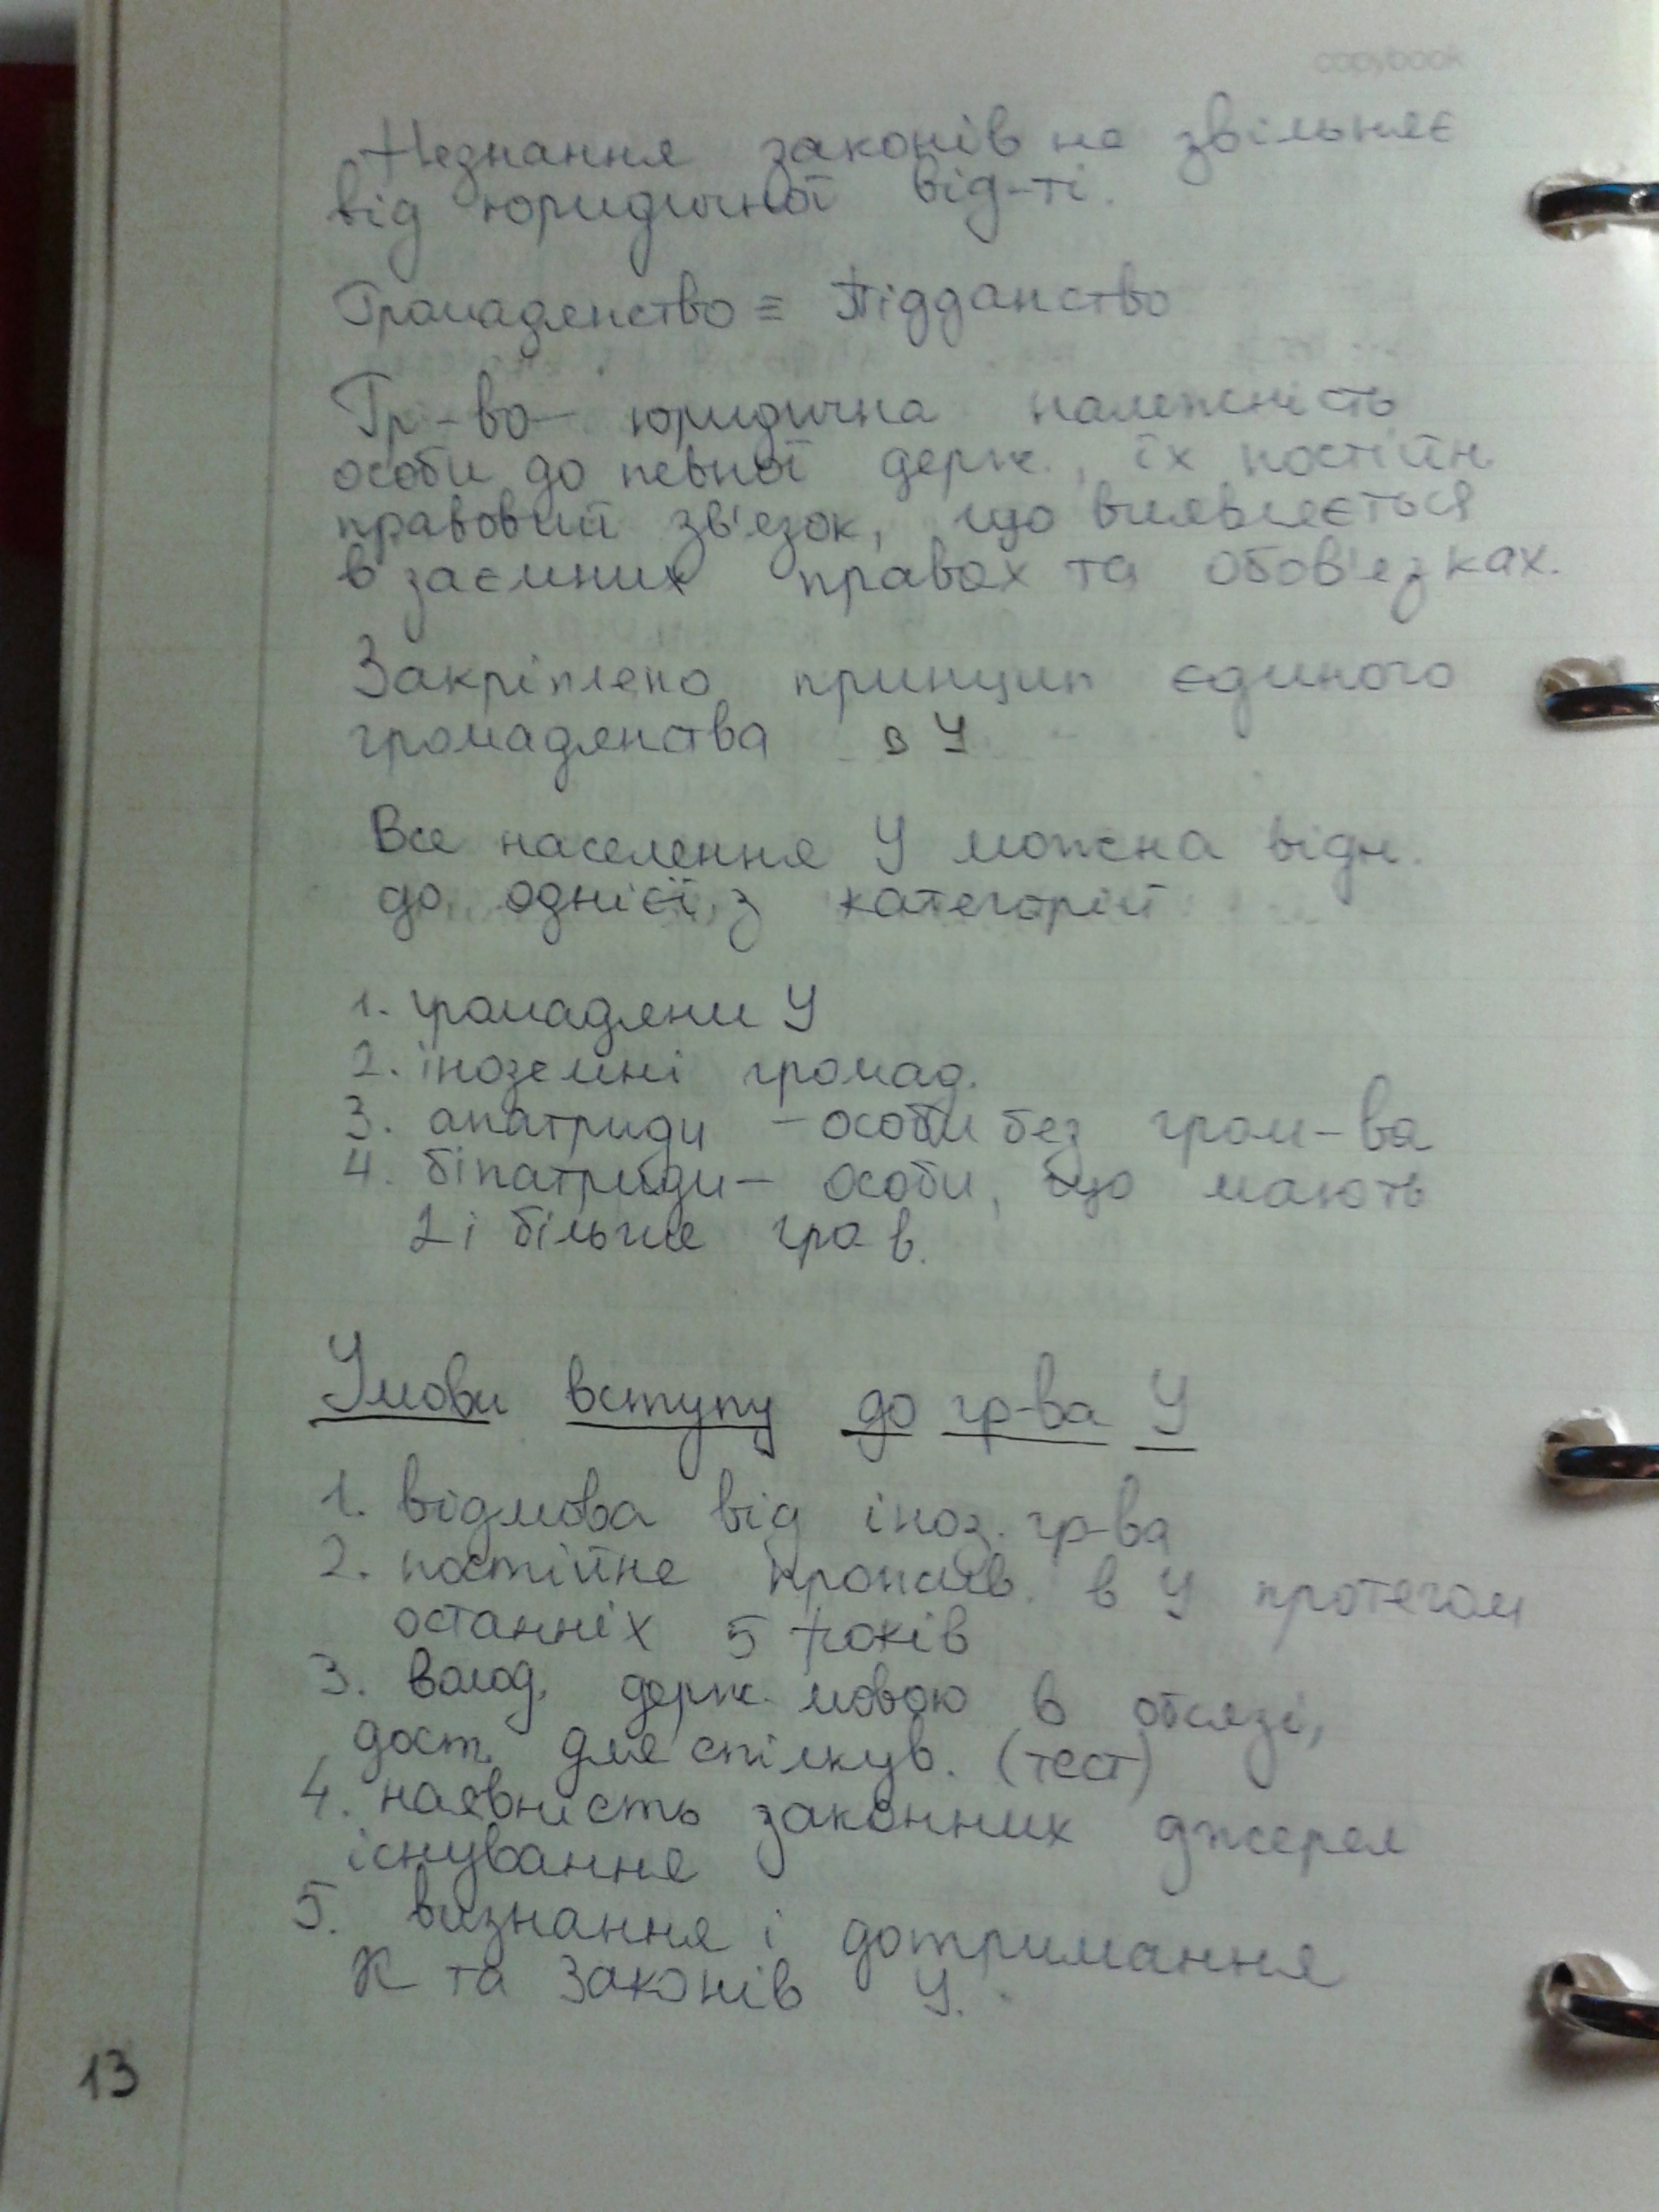 copybook
Незнання законів не звільняє
від юридичної від-ті.
Громадянство ≡ Підданство
Гр-во – юридична належність
особи до певної держ., їх постійн
правовий зв'язок, що виявляється
в заємних правах та обов'язках.
Закріплено принцип єдиного
громадянства в У
Все населення У можна відн.
до однієї з категорій
1. громадяни У
2. іноземні громад.
3. апатриди – особи без гром-ва
4. біпатриди – особи, що мають
2 і більше гр в.
Умови вступу до гр-ва У
1. відмова від іноз. гр-ва
2. постійне прожив. в У протягом
останніх 5 років
3. волод. держ. мовою в обсязі,
дост. для спілкув. (тест)
4. наявність законних джерел
існування
5. визнання і дотримання
К та Законів У.
13